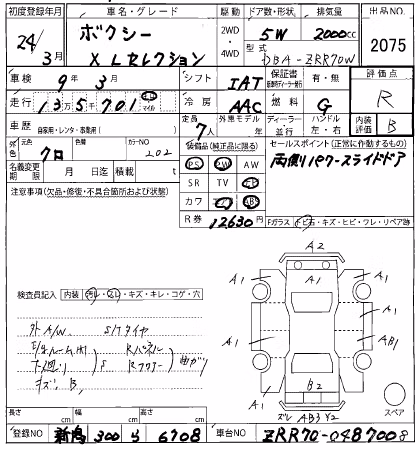 初度登録年月 車名・グレード 駆動 ドア数・形状 排気量 出品NO.
24/3月 ボクシー XLセレクション 2WD・4WD 5W 2000cc 2075
型式 DBA-ZRR70W
車検 9年3月 シフト IAT 保証書 有・無 評価点
走行 135千701 km マイル 冷房 AAC 燃料 G R
車歴 自家用・レンタ・事業用( ) 定員 7人 外車モデル 年 ディーラー 並行 ハンドル 左・右 内装評価 B
外色 元色 クロ 色替 カラーNO 202 装備品(純正品に限る) セールスポイント(正常に作動するもの)
PS PW AW 両側パワースライドドア
名義変更期限 月 日迄 積載 t SR TV
注意事項(欠品・修復・不具合箇所および状態) カワ AB
R券 12,630円 Fガラス トビ石・キズ・ヒビ・ワレ・リペア跡
A2
A1 A1 A1
A1 A1
検査員記入 内装 汚レ・コレ・キズ・キレ・コゲ・穴
外A/W S/Tタイヤ
A1 AB1
Rパネル
キズ B,
B2
A1 A1
ズレ AB3 Y2
スペア
長さ cm 幅 cm 高さ cm
登録NO 新潟 300 ら 6708 車台NO ZRR70-0487008